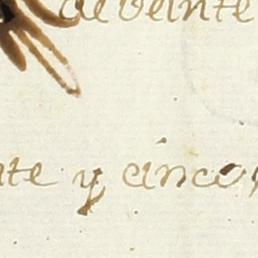 de veinte
te y cinco